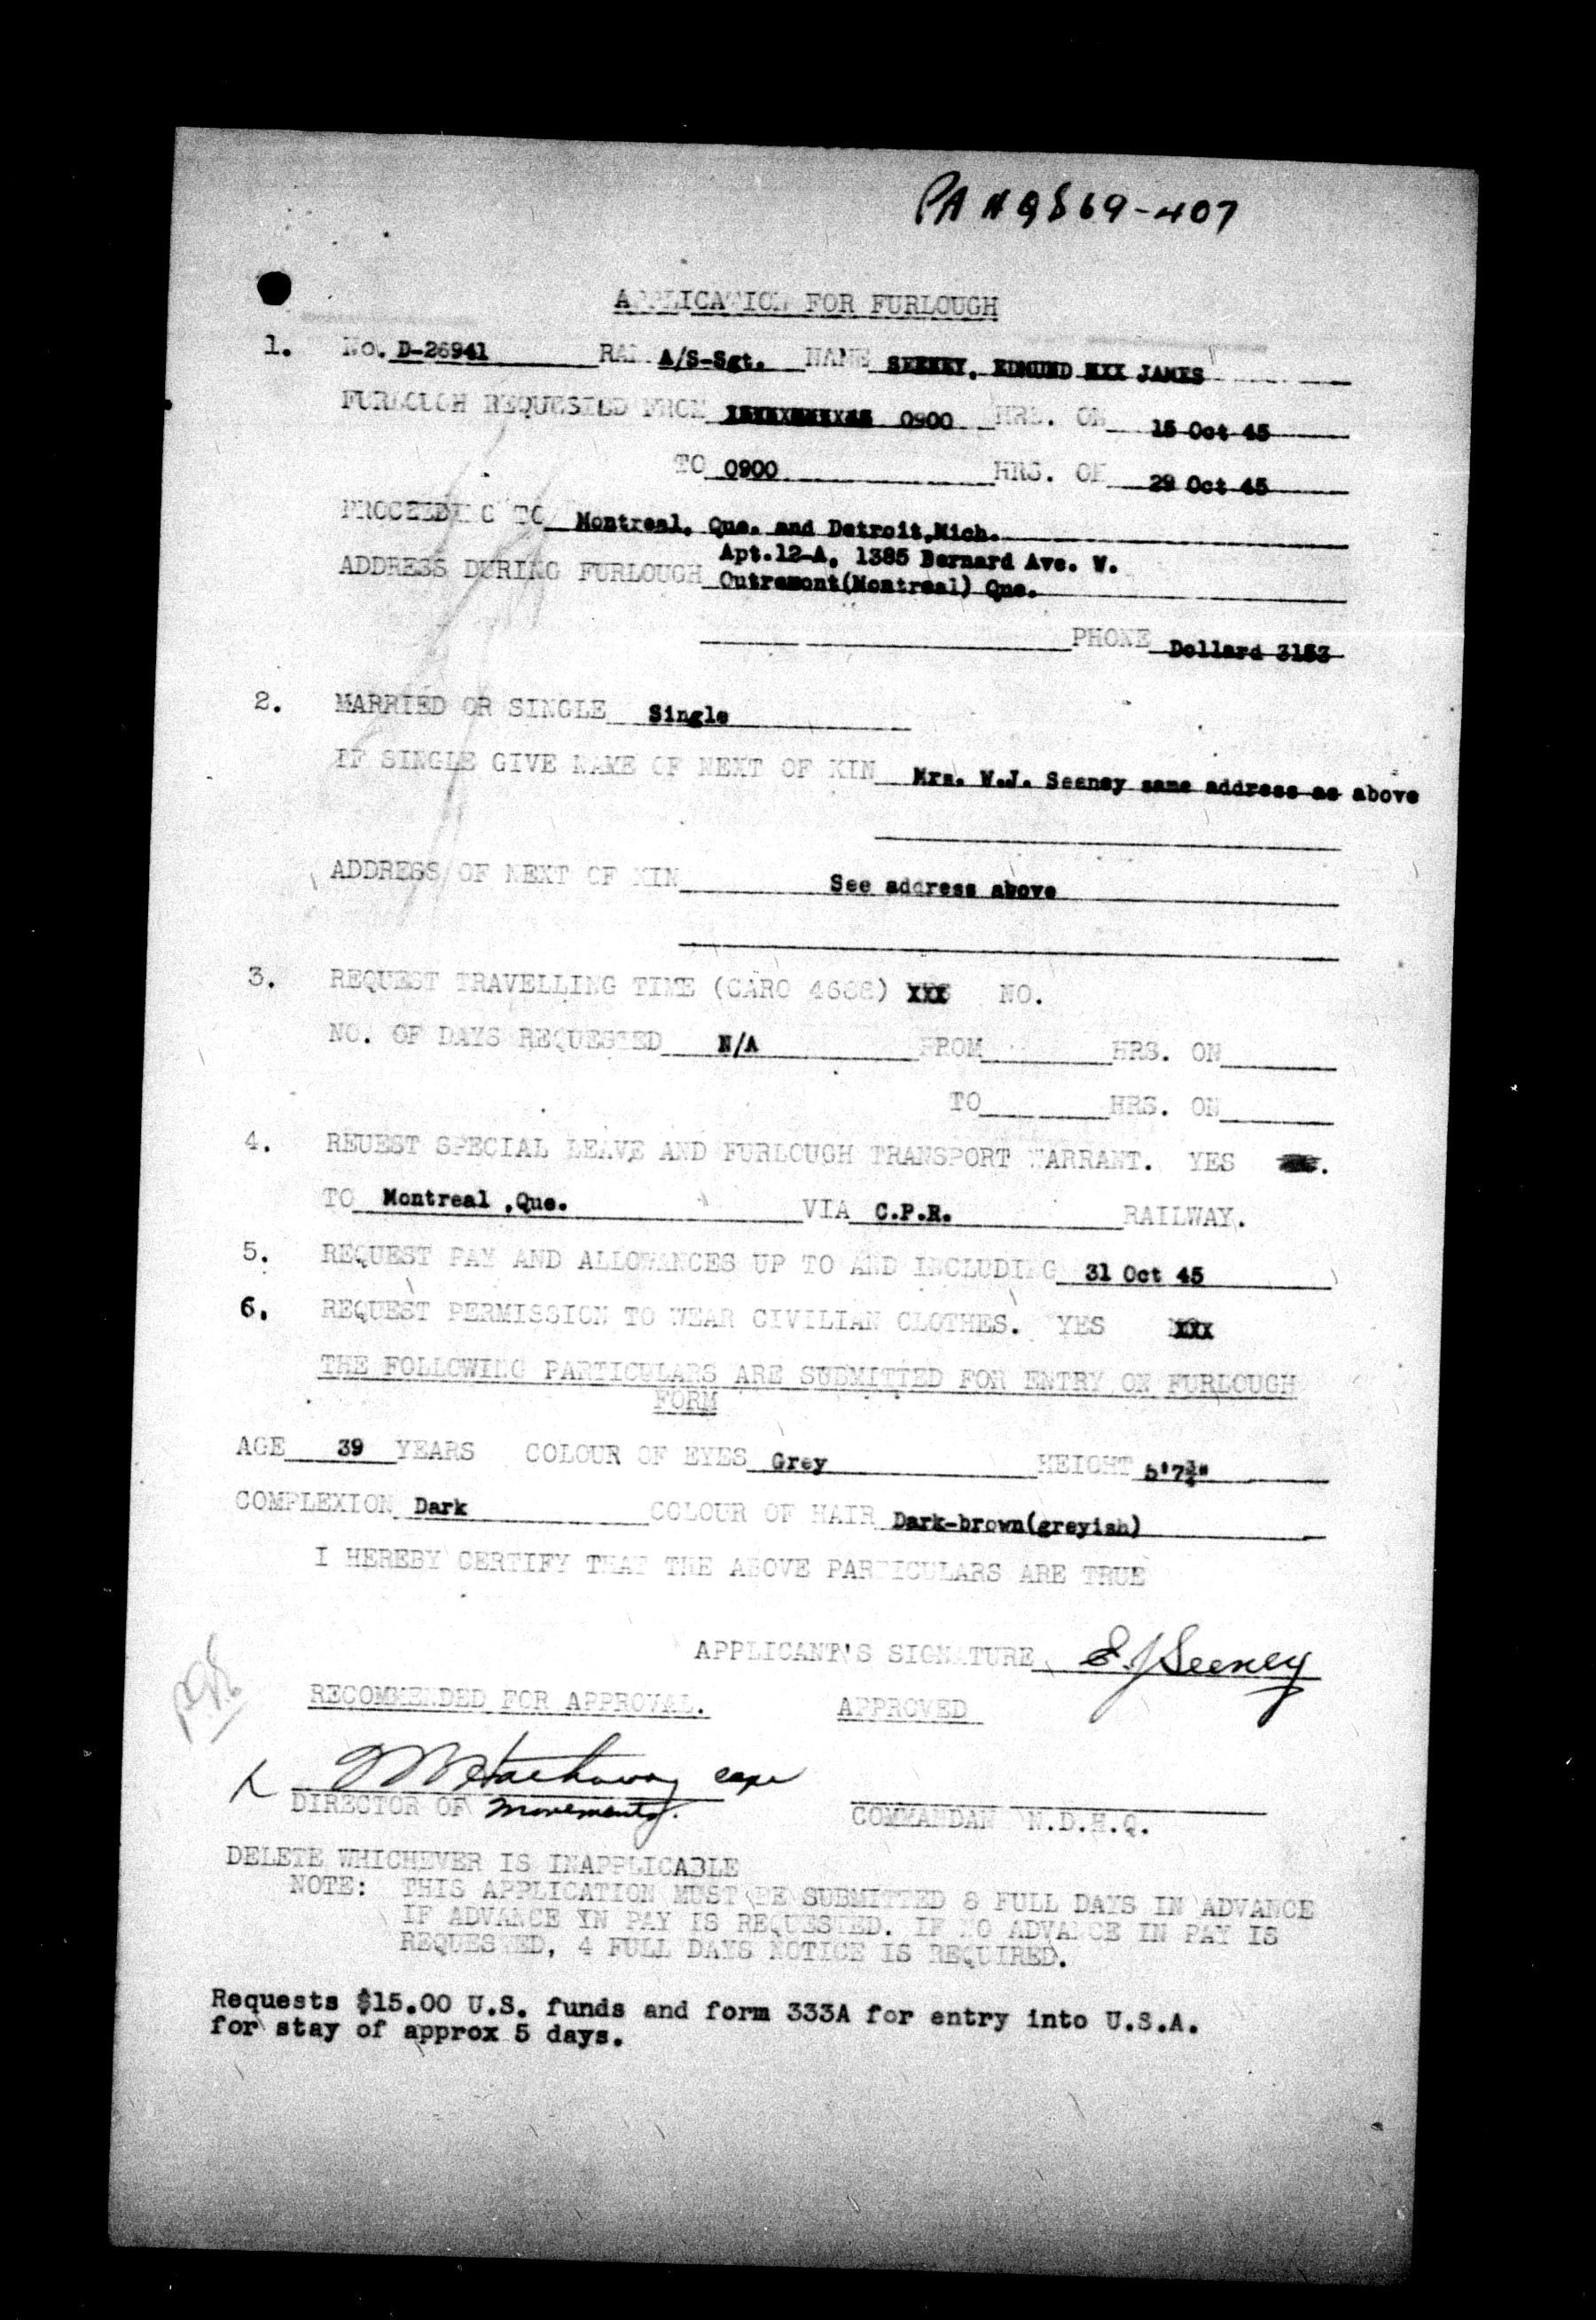 PA HQS 69-407
APPLICATION FOR FURLOUGH
1. No. D-26941 RANK A/S-Sgt. NAME SEENEY, EDMUND XXX JAMES
FURLOUGH REQUESTED FROM 0900 HRS. ON 15 Oct 45
TO 0900 HRS. OF 29 Oct 45
PROCEEDING TO Montreal, Que. and Detroit,Mich.
Apt.12-A, 1385 Bernard Ave. W.
ADDRESS DURING FURLOUGH Outremont(Montreal) Que.
PHONE Dollard 3153
2. MARRIED OR SINGLE Single
IF SINGLE GIVE NAME OF NEXT OF KIN Mrs. W.J. Seeney same address as above
ADDRESS OF NEXT OF KIN See address above
3. REQUEST TRAVELLING TIME (CARO 4688) XXX NO.
NO. OF DAYS REQUESTED N/A FROM HRS. ON
TO HRS. ON
4. REUEST SPECIAL LEAVE AND FURLOUGH TRANSPORT WARRANT. YES
TO Montreal ,Que. VIA C.P.R. RAILWAY.
5. REQUEST PAY AND ALLOWANCES UP TO AND INCLUDING 31 Oct 45
6. REQUEST PERMISSION TO WEAR CIVILIAN CLOTHES. YES XXX
THE FOLLOWING PARTICULARS ARE SUBMITTED FOR ENTRY ON FURLOUGH
FORM
AGE 39 YEARS COLOUR OF EYES Grey HEIGHT 5'7¾"
COMPLEXION Dark COLOUR OF HAIR Dark-brown(greyish)
I HEREBY CERTIFY THAT THE ABOVE PARTICULARS ARE TRUE
APPLICANT'S SIGNATURE E.J Seeney
RECOMMENDED FOR APPROVAL. APPROVED
Hathaway Capt
DIRECTOR OF Movements. COMMANDANT N.D.H.Q.
DELETE WHICHEVER IS INAPPLICABLE
NOTE: THIS APPLICATION MUST BE SUBMITTED 8 FULL DAYS IN ADVANCE
IF ADVANCE IN PAY IS REQUESTED. IF NO ADVANCE IN PAY IS
REQUESTED, 4 FULL DAYS NOTICE IS REQUIRED.
Requests $15.00 U.S. funds and form 333A for entry into U.S.A.
for stay of approx 5 days.